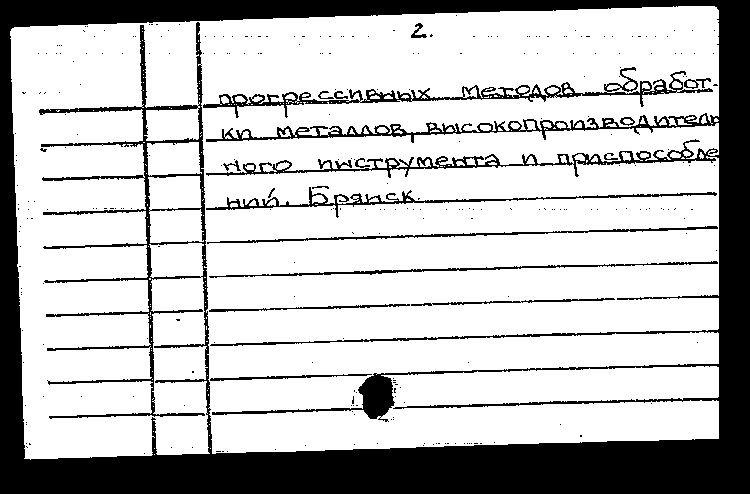 2.
прогрессивных методов обработ-
ки металлов, высокопроизводитель
ного инструмента и приспособле
ний. Брянск